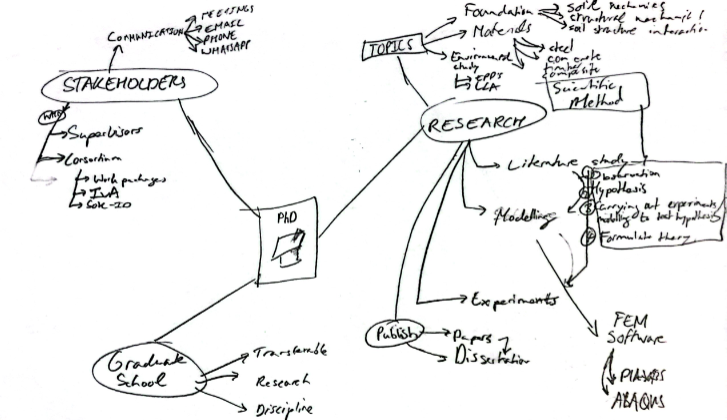 COMMUNICATION
MEETINGS
EMAIL
PHONE
WHATSAPP
STAKEHOLDERS
Supervisors
Consortium
Work packages
PhD
Graduate
School
Transferable
Research
Discipline
TOPICS
Foundation
Soil mechanics
structural mechanics
soil structure interaction
Materials
steel
concrete
timber
composite
Environmental
study
EPDs
LCA
Scientific
Method
RESEARCH
Literature study
Observation
Hypothesis
Carrying out experiments
modelling to test hypothesis
Formulate theory
Modelling
Experiments
Publish
Papers
Dissertation
FEM
Software
PLAXIS
ABAQUS